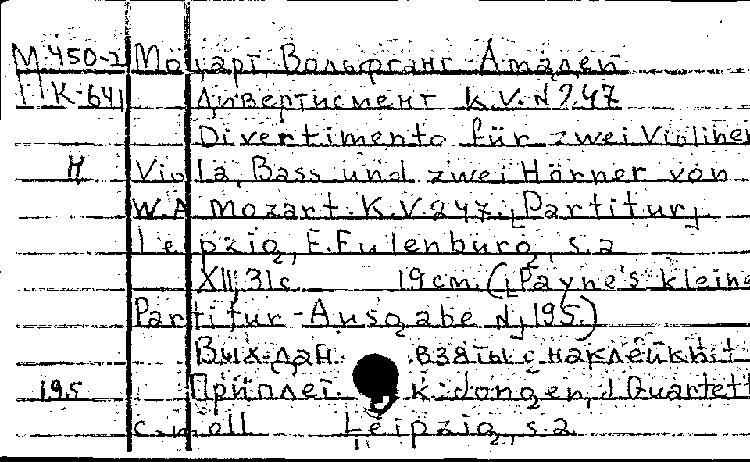 М 450-2 Моцарт Вольфганг Амадей
К-641 Дивертисмент K.V.N 247
Divertimento für zwei Violinen
Н Viola, Bass und zwei Hörner von
W.A Mozart. K.V.247. [Partitur].
Leipzig, E.Eulenburg, s.a
XIII, 31c. 19 cm. ([Payne's kleine
Partitur-Ausgabe N] 195.)
Вых.дан. взяты с наклейки
195 Приплет. Quartett
c.moll Leipzig, s.a